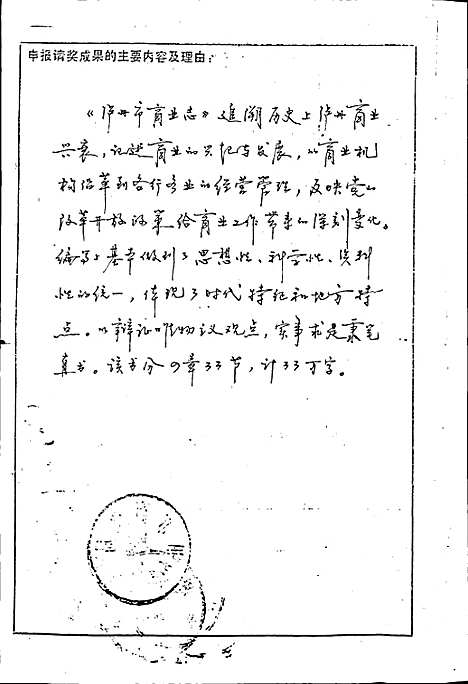 申报请奖成果的主要内容及理由：
《泸州市商业志》追溯历史上泸州商业
兴衰，记述商业的兴起与发展，以商业机
构沿革到各行各业的经营管理，反映党的
改革开放政策给商业工作带来的深刻变化。
编写上基本做到了思想性、科学性、资料
性的统一，体现了时代特征和地方特
点。以辩证唯物议观点，实事求是秉笔
直书。该书分四章33节，计33万字。